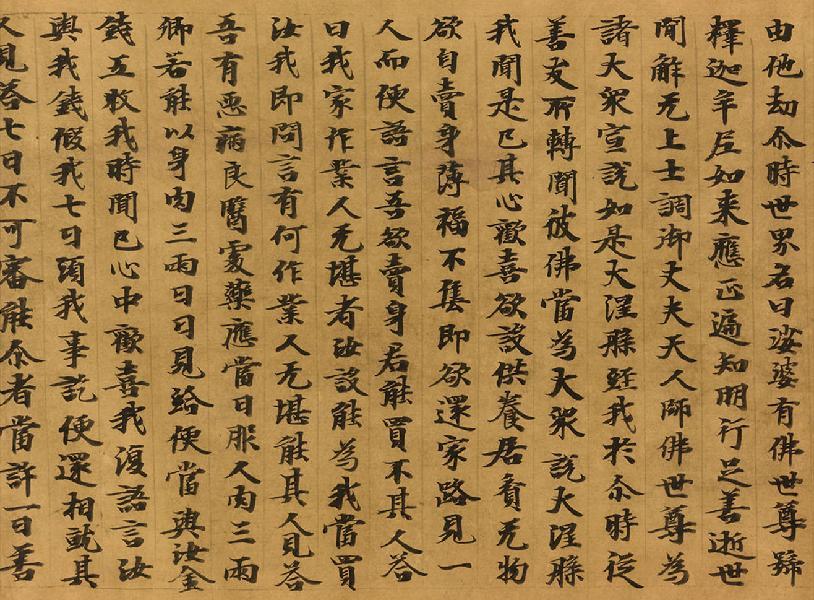 由他劫尒時世界名曰娑婆有佛世尊號
釋迦牟尼如來應正遍知明行足善逝世
閒解无上士調御丈夫天人師佛世尊為
諸大衆宣說如是大涅槃經我於尒時從
善友所轉聞彼佛當為大衆說大涅槃
我聞是已其心歡喜欲設供養居貧无物
欲自賣身薄福不售即欲還家路見一
人而便語言吾欲賣身君能買不其人答
曰我家作業人无堪者汝設能為我當買
汝我即問言有何作業人无堪能其人見答
吾有惡病良醫處藥應當日服人肉三兩
卿若能以身肉三兩日日見給便當與汝金
錢五枚我時聞已心中歡喜我復語言汝
與我錢假我七日須我事訖便還相就其
人見答七日不可審能尒者當許一日善